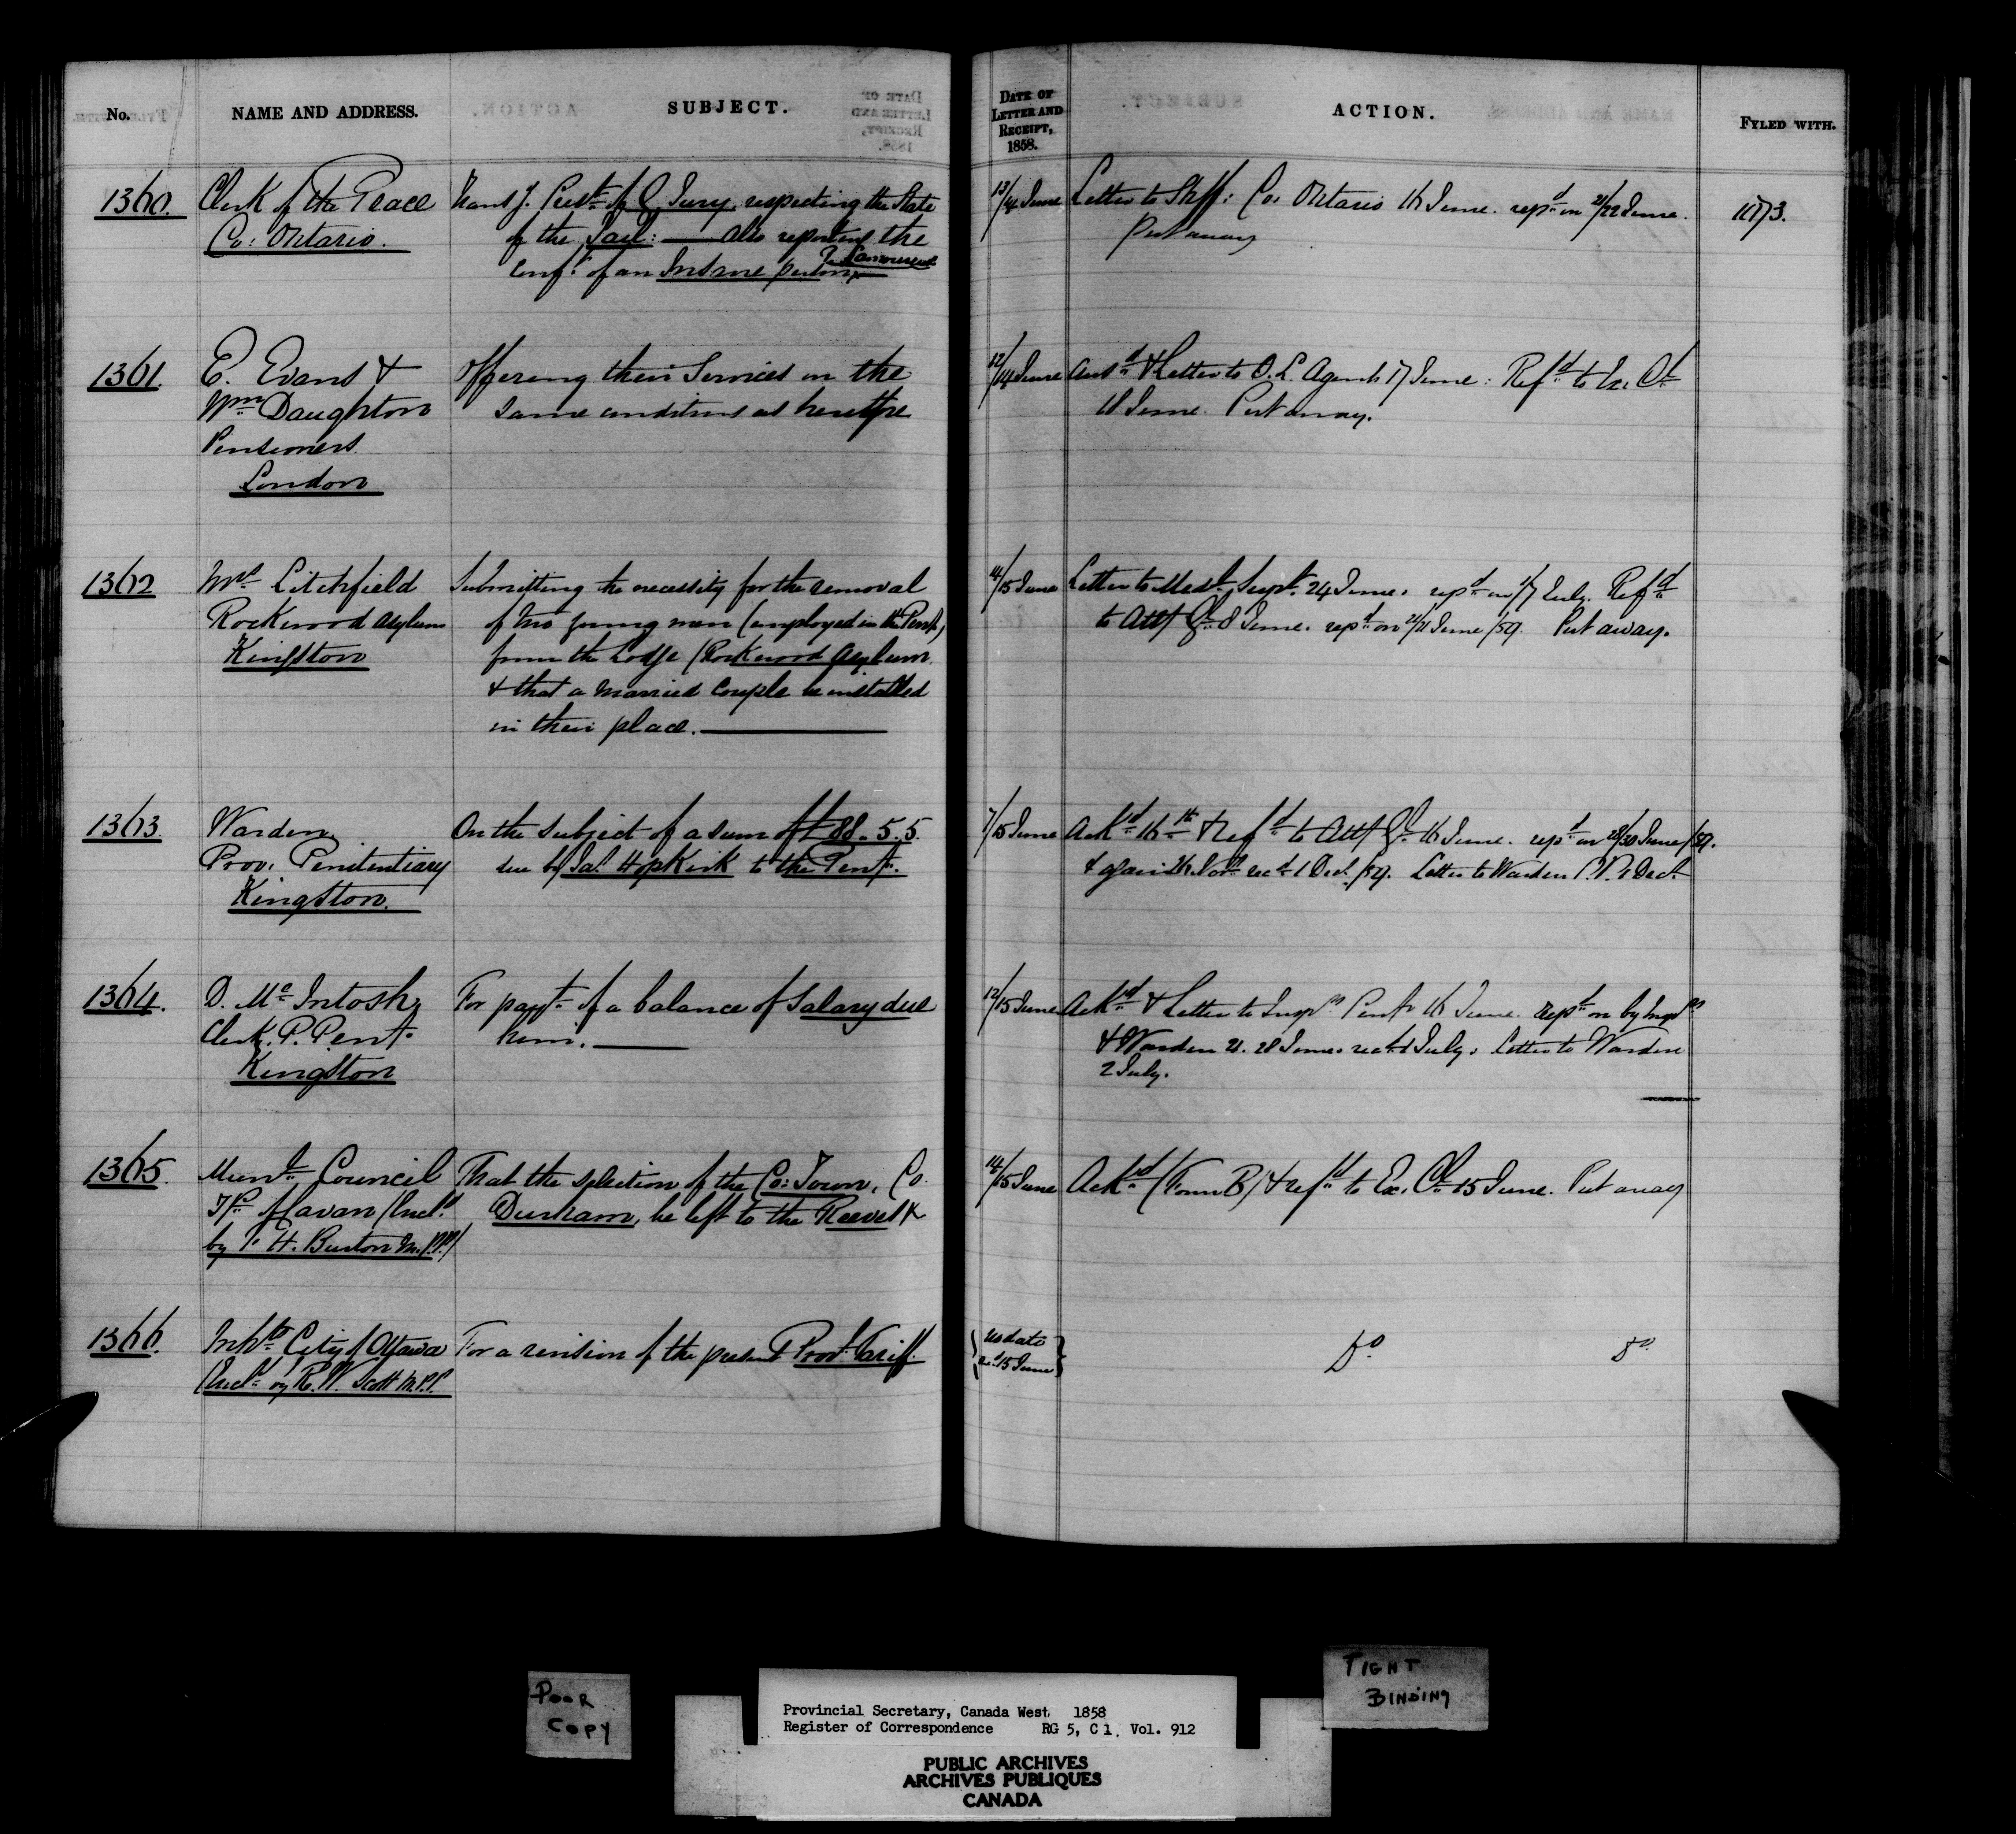 No.
NAME AND ADDRESS.
SUBJECT.
DATE OF
LETTER AND
RECEIPT,
1858.
ACTION.
FYLED WITH.
1360.
Clerk of the Peace
Co: Ontario.
of the Jail: — Also reporting the
Conft. of an Insane person
13/14 June
Letter to Shff: Co: Ontario 16 June. repd. on 21/22 June.
Put away
1173.
1361.
E. Evans &
Wm. Daughton
Pensioners
London
Offering their Services on the
same conditions as heretofore
12/14 June
Ansd. & Letter to C. L. Agent 17 June: Refd. to Ex. Cl.
18 June. Put away.
1362
Litchfield
Rockwood Asylum
Kingston
Submitting the necessity for the removal
of two young men (employed in the Pent.)
from the Lodge (Rockwood Asylum
& that a married couple be installed
in their place.
14/15 June
Letter to Medl. Supt. 24 June. repd. on July. Refd.
to Att/Gl. 8 June. repd. on June/59. Put away.
1363
Warden,
Prov: Penitentiary
Kingston.
On the subject of a sum of £88.5.5.
due by Jas. Hopkirk to the Pent.
7/15 June
Ackd. 16th & refd. to Att/Gl. 16 June. repd. on 28/30 June/59.
& again Novr. recd. 1 Dec./59. Letter to Warden P.P. Dec.
1364.
D. McIntosh,
Clerk. P. Pent.
Kingston
For payt. of a balance of Salary due
him.
12/15 June
Ackd. & Letter to Insprs Pent. 16 June. repd. on by Insprs
& Warden 21. 28 June. recd. 1 July. Letter to Warden
2 July.
1365.
Munl. Council
Tp. of Cavan (Incd.
by F. H. Burton M.P.P.)
That the selection of the Co: Town, Co.
Durham, be left to the Reeves &
14/15 June
Ackd. (Form B) & refd. to Ex. Cl. 15 June. Put away
1366.
Inhts. City of Ottawa
(Incd. by R. W. Scott M.P.P.
For a revision of the present Provl. Tariff.
no date
recd. 15 June
Do.
Do.
POOR
COPY
TIGHT
BINDING
Provincial Secretary, Canada West 1858
Register of Correspondence RG 5, C 1, Vol. 912
PUBLIC ARCHIVES
ARCHIVES PUBLIQUES
CANADA